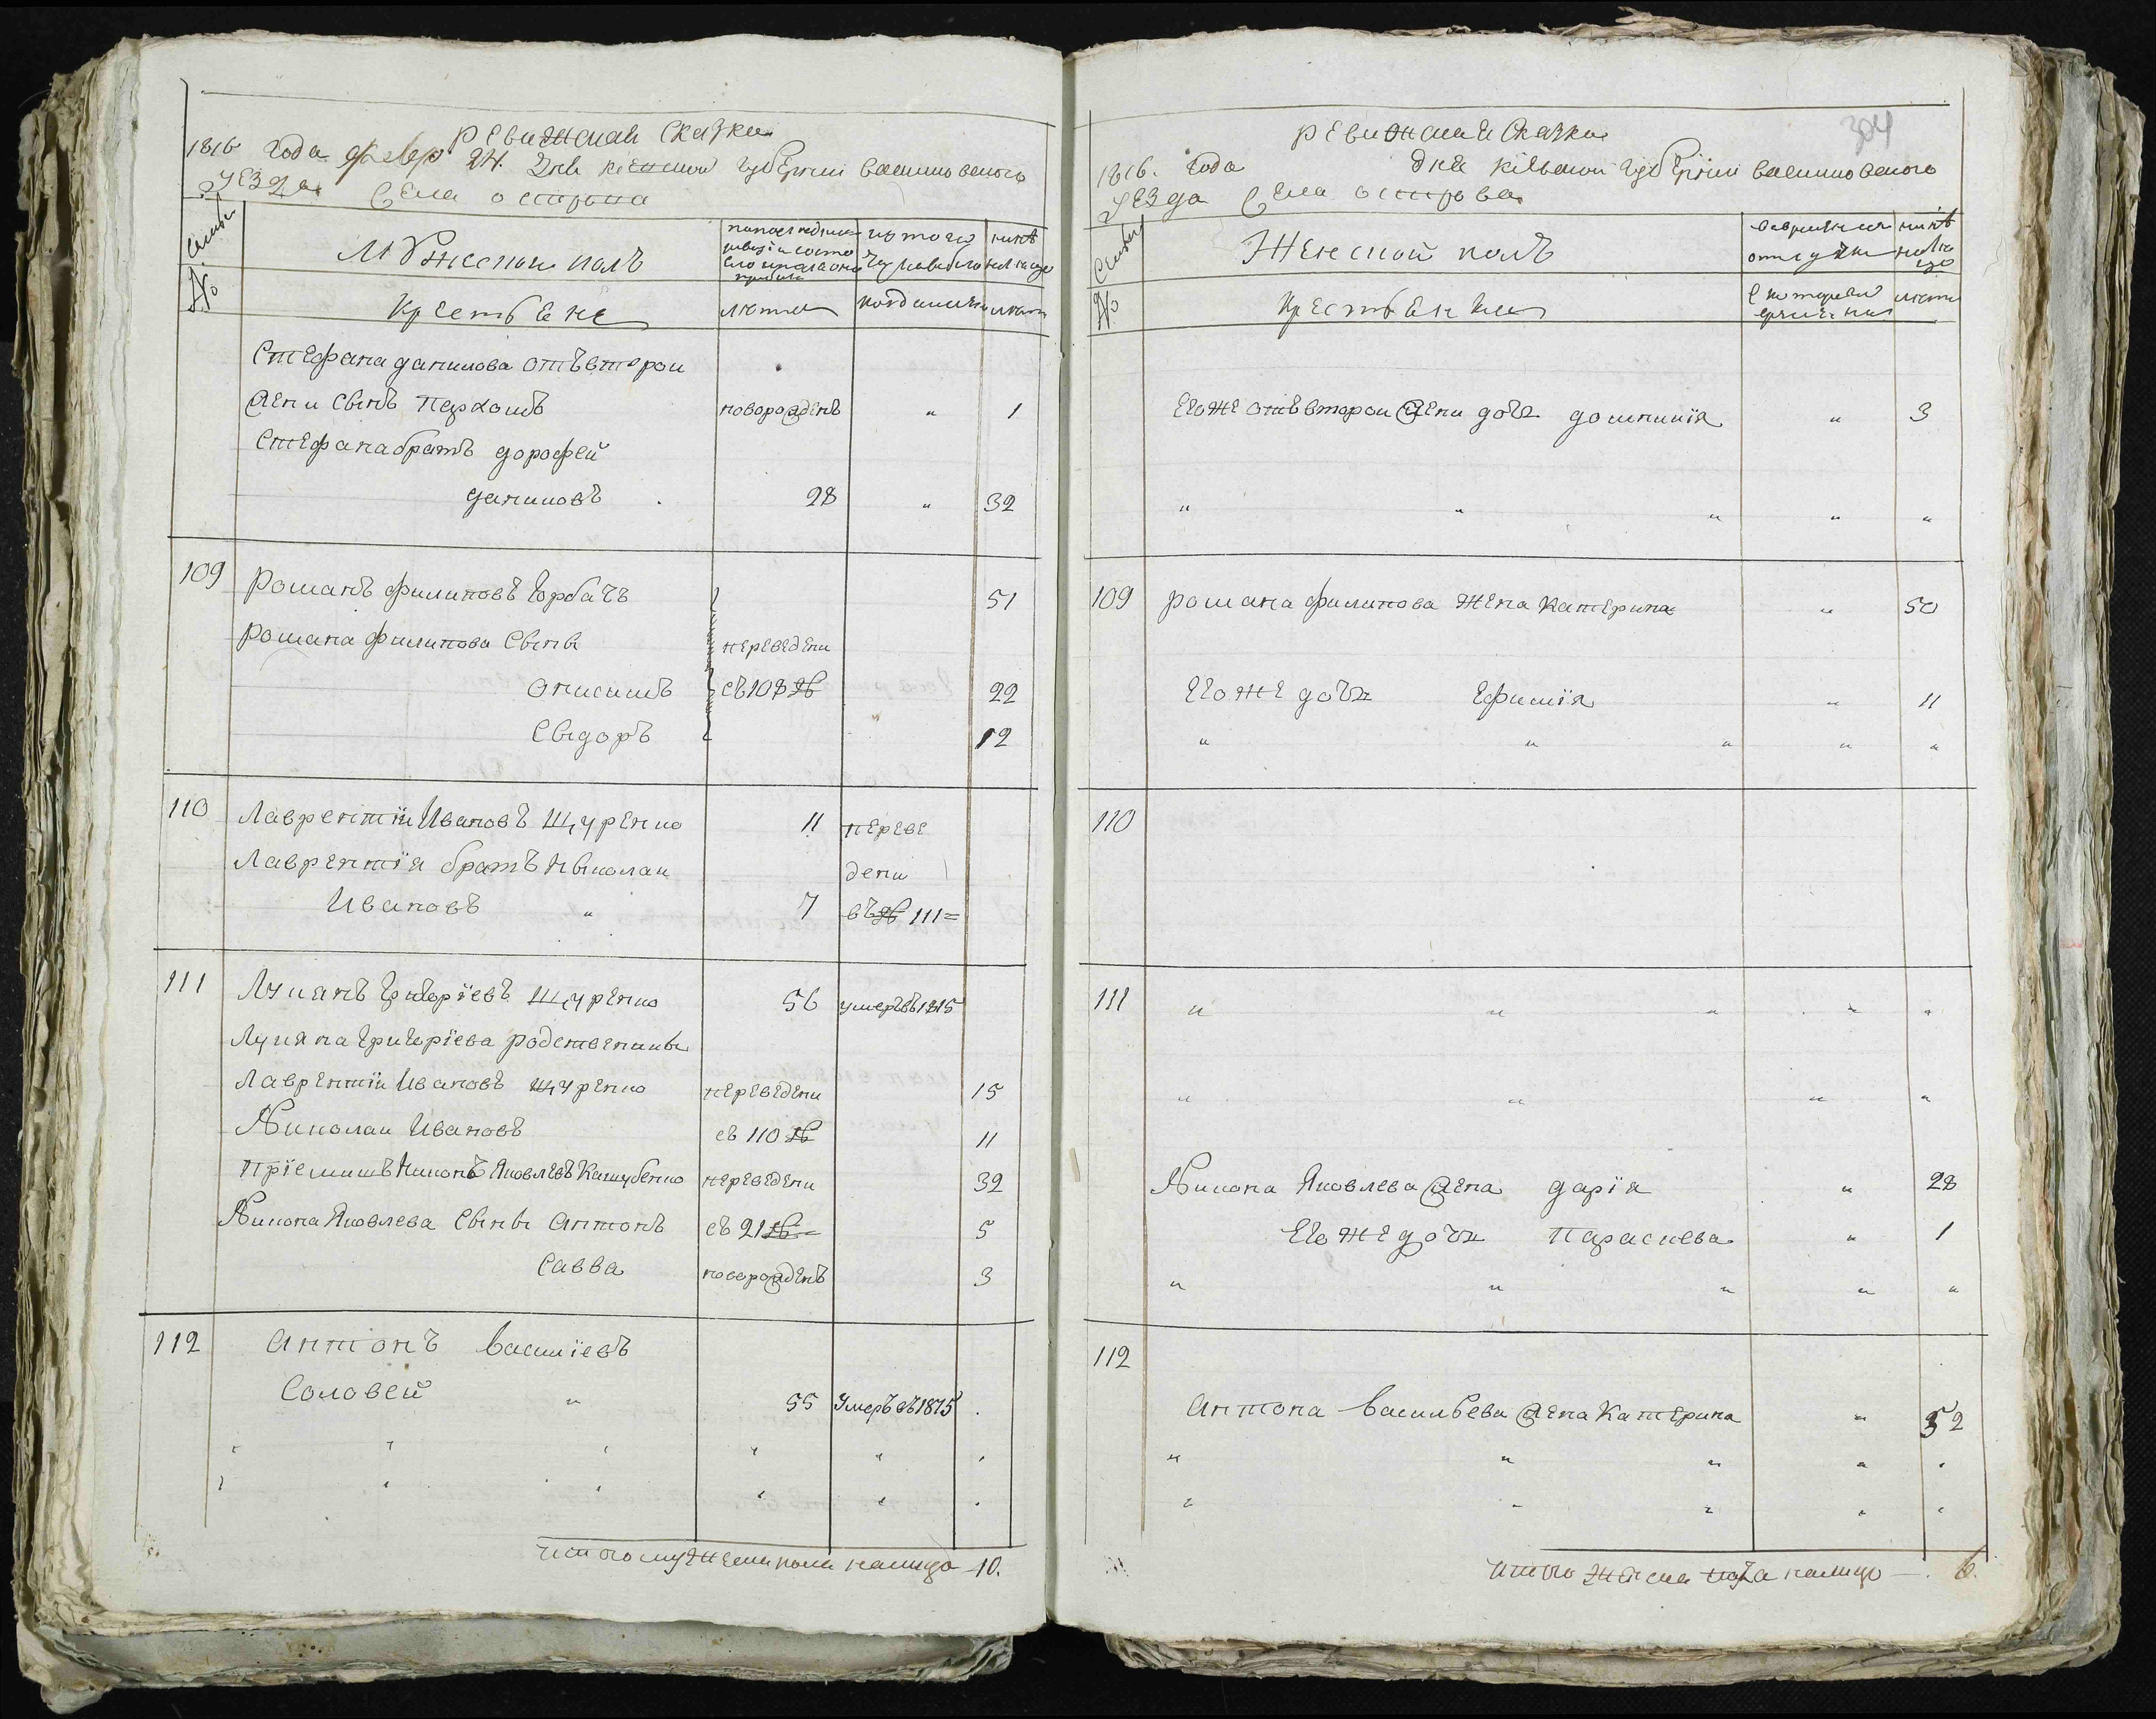 ревижская сказка
1816 года февр 24. дня киевской губернии васильковского
уезда села острова
семьи
№
Мужеской полъ
по последней ревизии состояло и после оной прибыло
из того числа выбыло
нынѣ на лицо
Крестьяне
лѣта
когда именно
лѣта
Стефана данилова отъ второй
жени сынъ Пархомъ новорожденъ " 1
Стефана братъ дорофей
даниловъ 28 " 32
109 Романъ филиповъ Горбачъ 51
Романа филипова сыны переведени
Онисимъ съ 108 № 22
Сыдоръ 12
110 Лаврентiй Ивановъ Щуренко 11 переве
Лаврентiя братъ Ныколаи дени
Ивановъ " 7 въ № 111=
111 Лукянъ Григорiевъ Щуренко 56 умеръ въ 1815
Лукяна Григорiева родственники
Лаврентiй Ивановъ Щуренко переведени 15
Николаи Ивановъ съ 110 № 11
Прiемишъ Никонъ Яковлевъ Кашубенко переведени 32
Никона Яковлева сыны Антонъ съ 21 № 5
Савва новорожденъ 3
112 Антонъ Василiевъ
Соловей " 55 Умеръ въ 1815
итого мужеска пола налицо 10.
304
ревижская сказка
1816. года дня кiевской губернии васильковского
уезда села острова
семьи
№
Женской полъ
во временной отлучке
нынѣ на лицо
Крестьянки
с которого времени
лѣта
Егоже отъ второй жени дочь домникiя " 3
" " " " "
109 Романа филипова жена Катерина " 50
Егоже дочь Ефимiя " 11
" " " " "
110
111 " " " " "
" " " "
Никона Яковлева жена дарiя " 28
Егоже дочь Параскева " 1
" " " " "
112
Антона Васильева жена Катерина " 52
" " " " "
" " " " "
итого женска пола налицо 6.